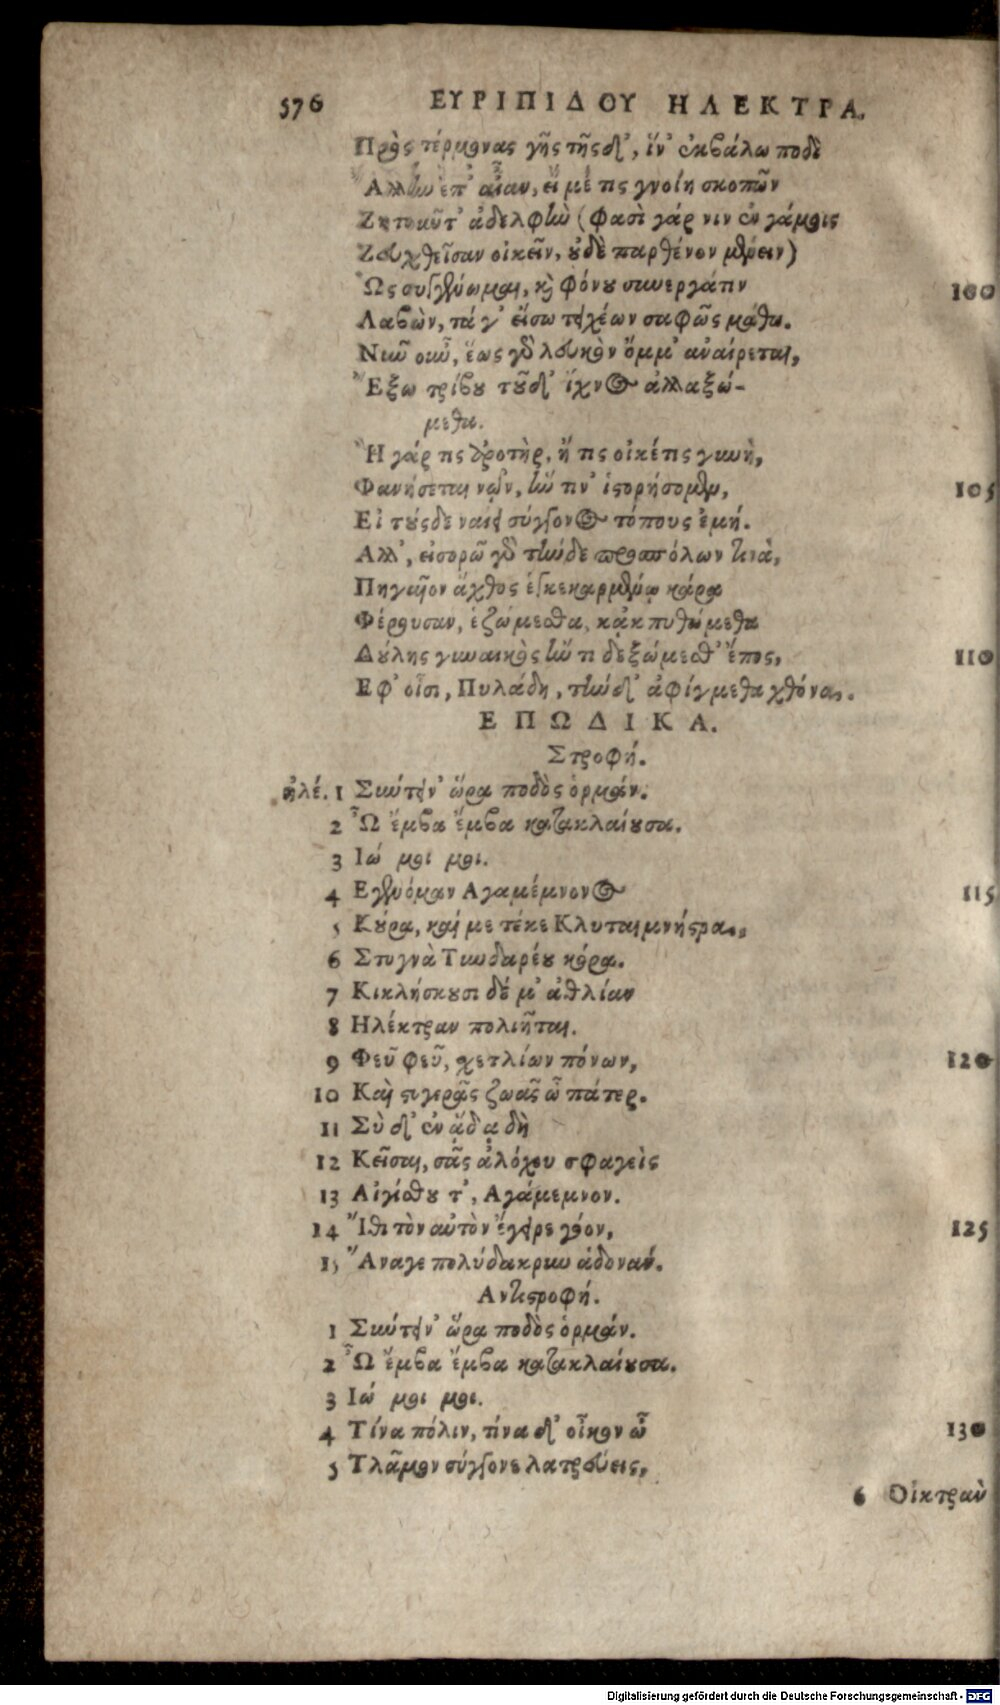 576 ΕΥΡΙΠΙΔΟΥ ΗΛΕΚΤΡΑ.
Πρὸς τέρμονας γῆς τῆςδ', ἵν' ἐκβάλω ποδὶ
Ἄλλην ἐπ' αἶαν, εἴ μέ τις γνοίη σκοπῶν
Ζητοῦντ' ἀδελφὴν (φασὶ γάρ νιν ἐν γάμοις
Ζευχθεῖσαν οἰκεῖν, οὐδὲ παρθένον μένειν)
Ὡς συγγένωμαι, καὶ φόνου συνεργάτιν 100
Λαβὼν, τά γ' εἴσω τειχέων σαφῶς μάθω.
Νῦν οὖν, ἕως γὰρ λευκὸν ὄμμ' ἀναίρεται,
Ἔξω τρίβου τοῦδ' ἴχνος ἀλλαξώ-
μεθα.
Ἢ γάρ τις ἀροτὴρ, ἤ τις οἰκέτις γυνὴ,
Φανήσεται νῷν, ἥν τιν' ἱστορήσομεν, 105
Εἰ τούςδε ναίει σύγγονος τόπους ἐμή.
Αλλ', εἰσορῶ γὰρ τήνδε προσπόλων τινὰ,
Πηγαῖον ἄχθος ἐγκεκαρμένῳ κάρα
Φέρουσαν, ἑζώμεσθα, κἀκπυθώμεθα
Δούλης γυναικὸς ἤν τι δεξώμεσθ' ἔπος, 110
Εφ' οἷσι, Πυλάδη, τήνδ' ἀφίγμεθα χθόνα.
ΕΠΩΔΙΚΑ.
Στροφή.
ἠλέ. 1 Σύντειν' ὥρα ποδὸς ὁρμάν.
2 Ὦ ἔμβα ἔμβα κατακλαίουσα.
3 Ιώ μοι μοι.
4 Εγενόμαν Αγαμέμνονος 115
5 Κούρα, καί με τέκε Κλυταιμνήστρα,
6 Στυγνὰ Τυνδαρέου κόρα.
7 Κικλήσκουσι δέ μ' ἀθλίαν
8 Ηλέκτραν πολιῆται.
9 Φεῦ φεῦ, σχετλίων πόνων, 120
10 Καὶ στυγερᾶς ζωᾶς ὦ πάτερ.
11 Σὺ δ' ἐν ᾅδᾳ δὴ
12 Κεῖσαι, σᾶς ἀλόχου σφαγεὶς
13 Αἰγίσθου τ', Αγάμεμνον.
14 Ἴθι τὸν αὐτὸν ἔγειρε γόον, 125
15 Ἄναγε πολύδακρυν ἁδονάν.
Αντιστροφή.
1 Σύντειν' ὥρα ποδὸς ὁρμάν.
2 Ὦ ἔμβα ἔμβα κατακλαίουσα.
3 Ιώ μοι μοι.
4 Τίνα πόλιν, τίνα δ' οἶκον ὦ 130
5 Τλᾶμον σύγγονε λατρεύεις,
6 Οἰκτρὰν
Digitalisierung gefördert durch die Deutsche Forschungsgemeinschaft - DFG